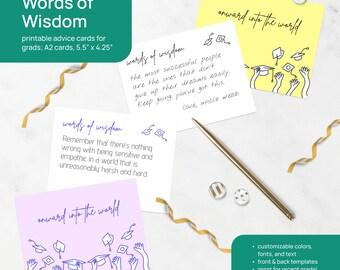 Words of
Wisdom
printable advice cards for
grads; A2 cards, 5.5" x 4.25"
onward into the world
words of wisdom
the most successful people
are the ones that don't
give up their dreams easily.
Keep going you've got this.
love, uncle webb
words of wisdom
Remember that there's nothing
wrong with being sensitive and
empathic in a world that is
unreasonably harsh and hard.
onward into the world
customizable colors,
fonts, and text
front & back templates
great for recent grads!